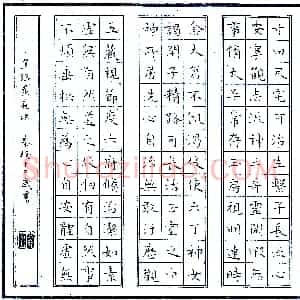 寸田尺宅可治生繫子長流心
安寧觀志流神三奇靈閒暇無
事脩太平常存玉房視明達時
念大倉不飢渴役使六丁神女
謁閉子精路可長活正室之中
神所居洗心自治無敢汙歷觀
五藏視節度六府修治潔如素
虛無自然道之故物有自然事
不煩垂拱無為心自安體虛無